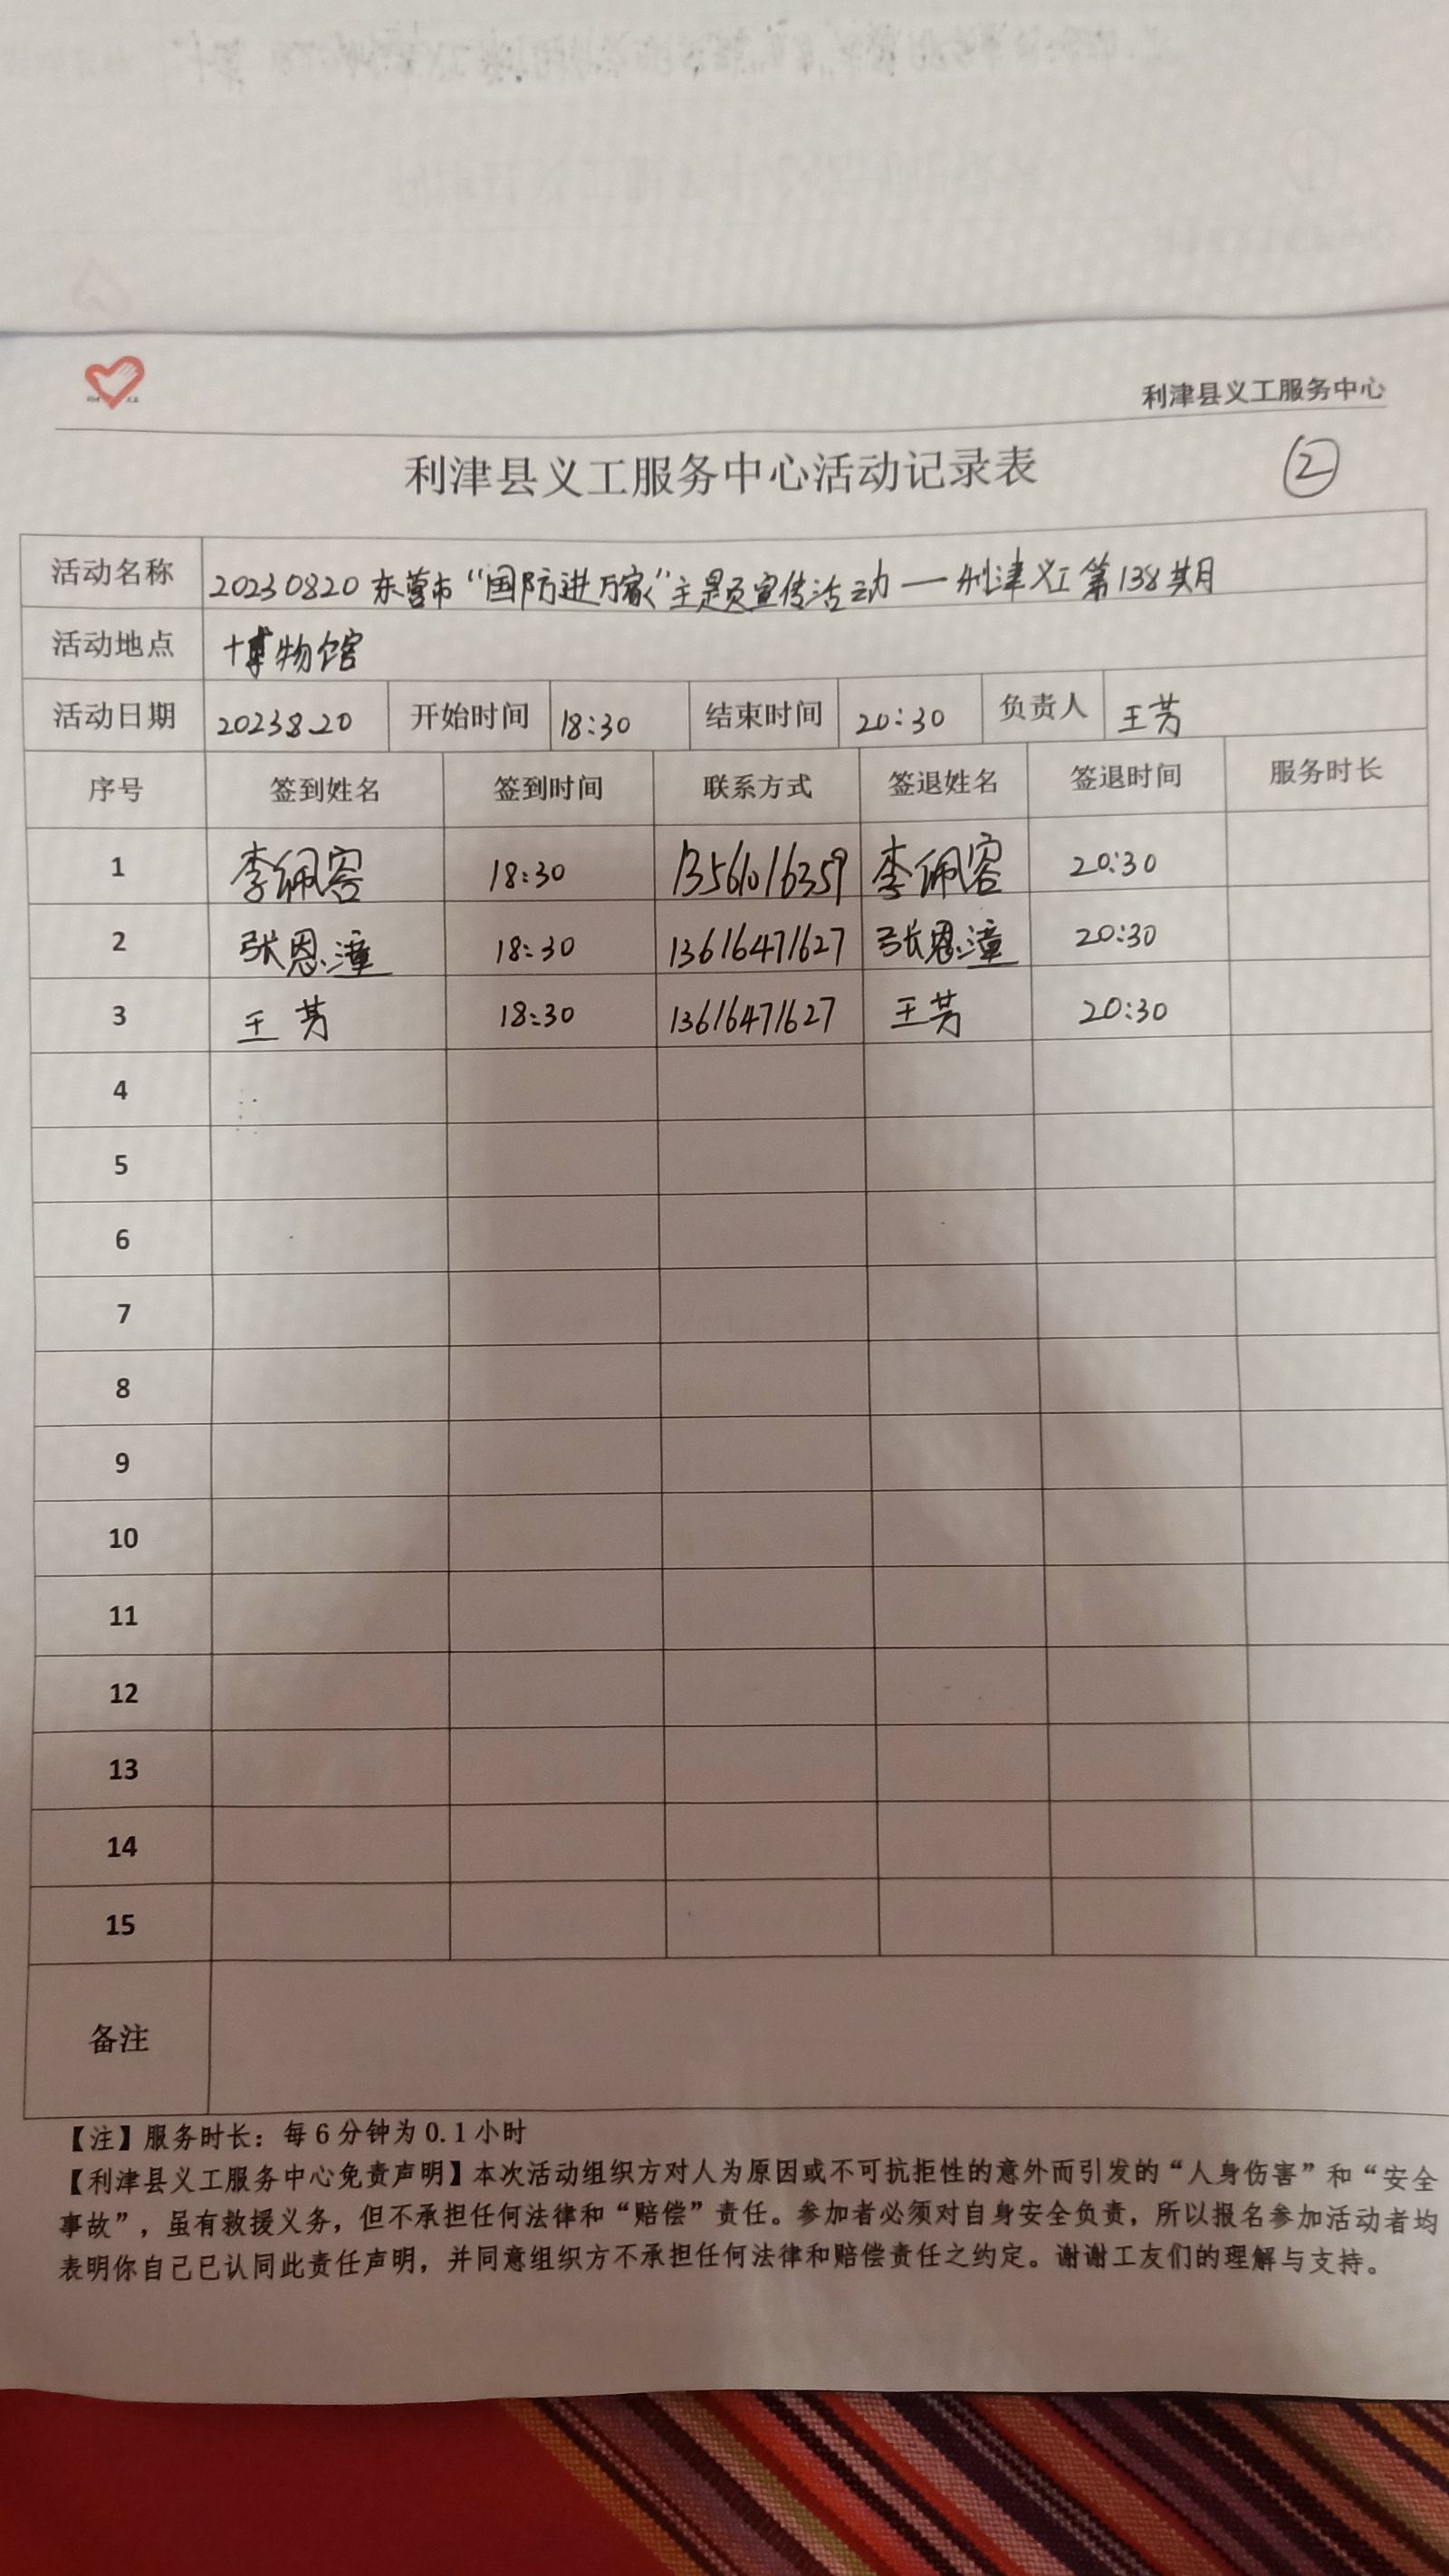 利津县义工服务中心
利津县义工服务中心活动记录表 ②
活动名称 20230820东营市“国防进万家”主题宣传活动—利津义工第138期
活动地点 博物馆
活动日期 2023.8.20 开始时间 18:30 结束时间 20:30 负责人 王芳
序号 签到姓名 签到时间 联系方式 签退姓名 签退时间 服务时长
1 李佩容 18:30 13561016359 李佩容 20:30
2 张恩潼 18:30 13616471627 张恩潼 20:30
3 王芳 18:30 13616471627 王芳 20:30
4
5
6
7
8
9
10
11
12
13
14
15
备注
【注】服务时长：每6分钟为0.1小时
【利津县义工服务中心免责声明】本次活动组织方对人为原因或不可抗拒性的意外而引发的“人身伤害”和“安全
事故”，虽有救援义务，但不承担任何法律和“赔偿”责任。参加者必须对自身安全负责，所以报名参加活动者均
表明你自己已认同此责任声明，并同意组织方不承担任何法律和赔偿责任之约定。谢谢工友们的理解与支持。